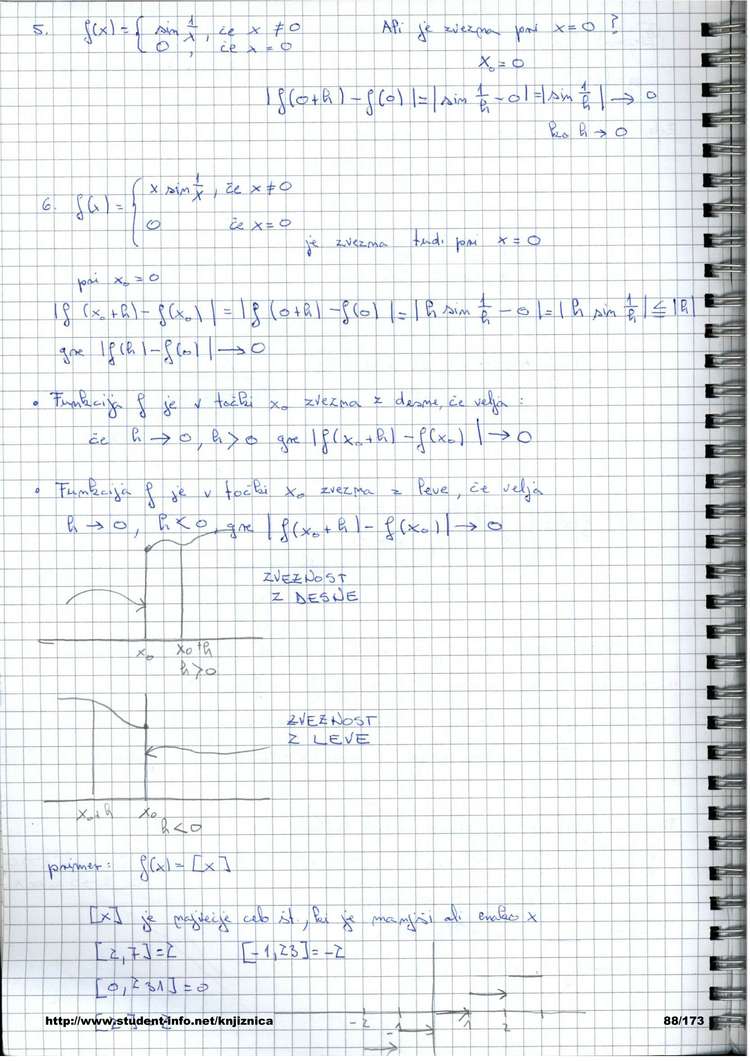 5. f(x) = { sin 1/x, če x ≠ 0 Ali je zvezna pri x = 0 ?
0, če x = 0 x₀ = 0
|f(0+h) - f(0)| = |sin 1/h - 0| = |sin 1/h| → 0
ko h → 0
6. f(x) = { x sin 1/x, če x ≠ 0
0 če x = 0
je zvezna tudi pri x = 0
pri x₀ = 0
|f(x₀+h) - f(x₀)| = |f(0+h) - f(0)| = |h sin 1/h - 0| = |h sin 1/h| ≦ |h|
gre |f(h) - f(0)| → 0
• Funkcija f je v točki x₀ zvezna z desne, če velja :
če h → 0, h > 0 gre |f(x₀+h) - f(x₀)| → 0
• Funkcija f je v točki x₀ zvezna z leve, če velja
h → 0, h < 0, gre |f(x₀+h) - f(x₀)| → 0
ZVEZNOST
Z DESNE
x₀ x₀+h
h > 0
ZVEZNOST
Z LEVE
x₀+h x₀
h < 0
primer: f(x) = [x]
[x] je največje celo št., ki je manjši ali enako x
[2,7] = 2 [-1,23] = -2
[0,231] = 0
http://www.student-info.net/knjiznica 88/173
-2 -1 1 2